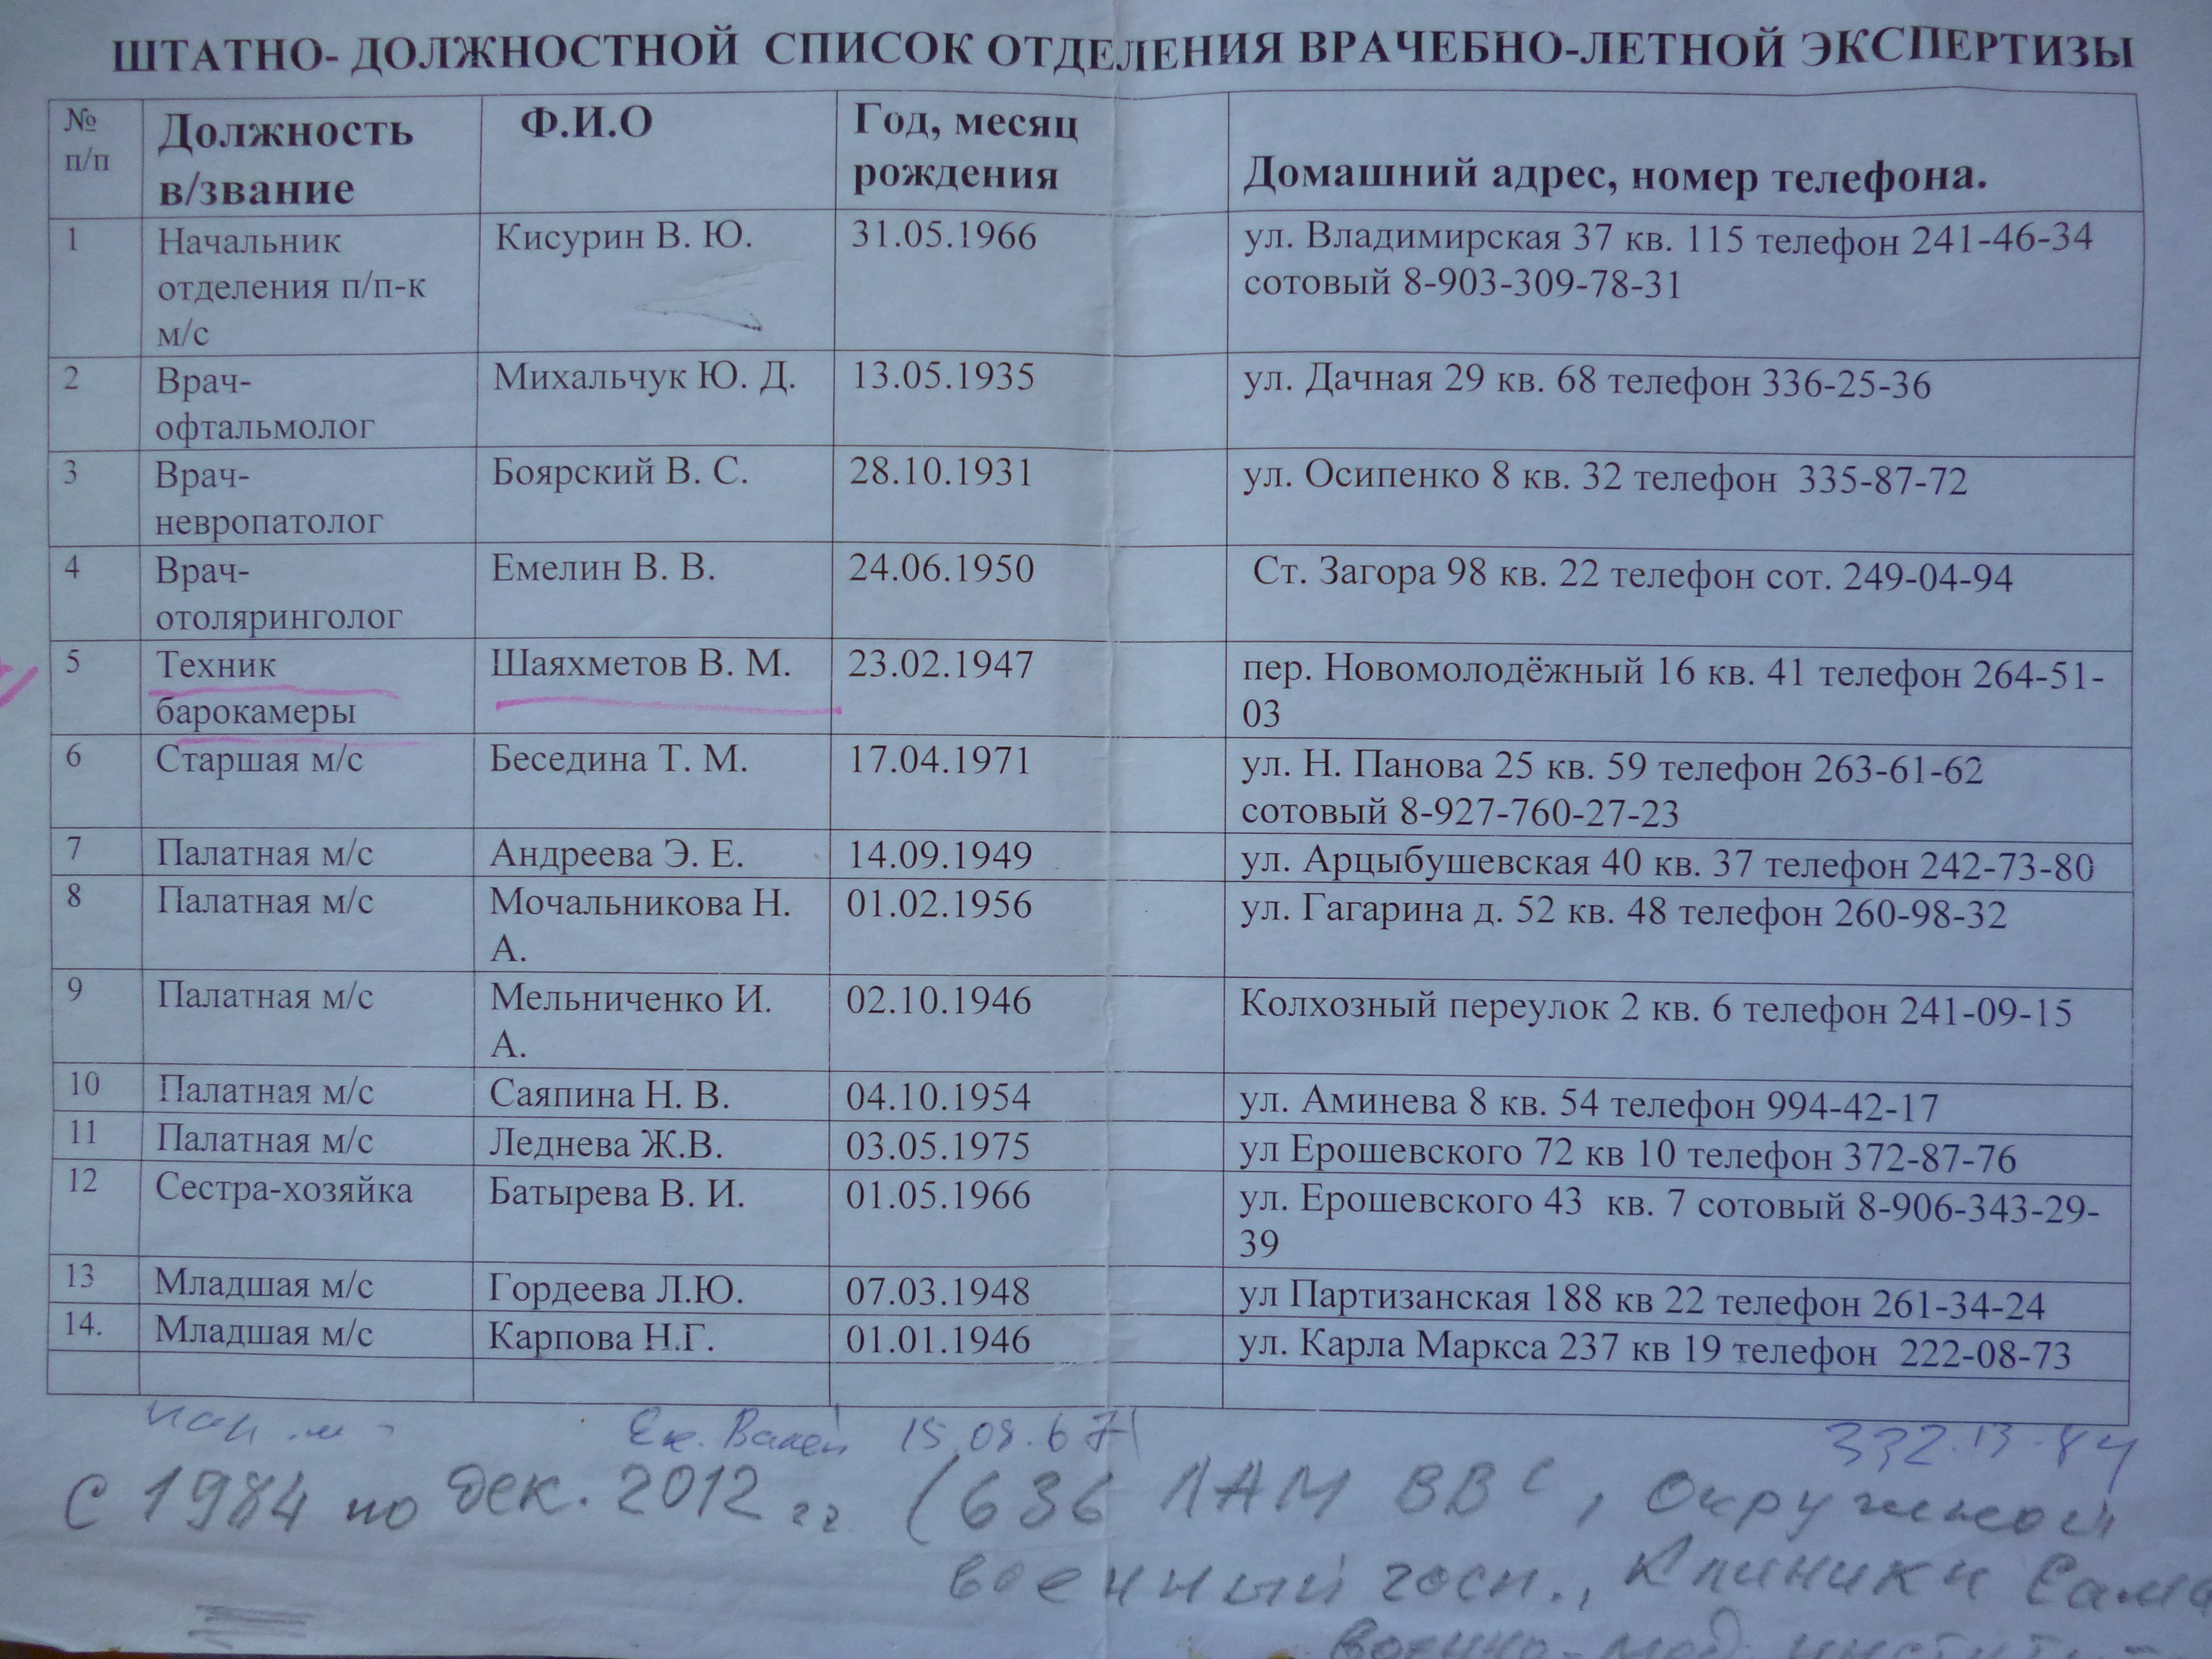 ШТАТНО- ДОЛЖНОСТНОЙ СПИСОК ОТДЕЛЕНИЯ ВРАЧЕБНО-ЛЕТНОЙ ЭКСПЕРТИЗЫ
№ п/п Должность в/звание Ф.И.О Год, месяц рождения Домашний адрес, номер телефона.
1 Начальник Кисурин В. Ю. 31.05.1966 ул. Владимирская 37 кв. 115 телефон 241-46-34
отделения п/п-к сотовый 8-903-309-78-31
м/с
2 Врач- Михальчук Ю. Д. 13.05.1935 ул. Дачная 29 кв. 68 телефон 336-25-36
офтальмолог
3 Врач- Боярский В. С. 28.10.1931 ул. Осипенко 8 кв. 32 телефон 335-87-72
невропатолог
4 Врач- Емелин В. В. 24.06.1950 Ст. Загора 98 кв. 22 телефон сот. 249-04-94
отоляринголог
5 Техник Шаяхметов В. М. 23.02.1947 пер. Новомолодёжный 16 кв. 41 телефон 264-51-
барокамеры 03
6 Старшая м/с Беседина Т. М. 17.04.1971 ул. Н. Панова 25 кв. 59 телефон 263-61-62
сотовый 8-927-760-27-23
7 Палатная м/с Андреева Э. Е. 14.09.1949 ул. Арцыбушевская 40 кв. 37 телефон 242-73-80
8 Палатная м/с Мочальникова Н. 01.02.1956 ул. Гагарина д. 52 кв. 48 телефон 260-98-32
А.
9 Палатная м/с Мельниченко И. 02.10.1946 Колхозный переулок 2 кв. 6 телефон 241-09-15
А.
10 Палатная м/с Саяпина Н. В. 04.10.1954 ул. Аминева 8 кв. 54 телефон 994-42-17
11 Палатная м/с Леднева Ж.В. 03.05.1975 ул Ерошевского 72 кв 10 телефон 372-87-76
12 Сестра-хозяйка Батырева В. И. 01.05.1966 ул. Ерошевского 43 кв. 7 сотовый 8-906-343-29-
39
13 Младшая м/с Гордеева Л.Ю. 07.03.1948 ул Партизанская 188 кв 22 телефон 261-34-24
14. Младшая м/с Карпова Н.Г. 01.01.1946 ул. Карла Маркса 237 кв 19 телефон 222-08-73
15.08.67 332.13-84
С 1984 по дек. 2012 гг (636 ЛАМ ВВС, Окружной
военный госп., Клиники Сама
военно-мед. институт